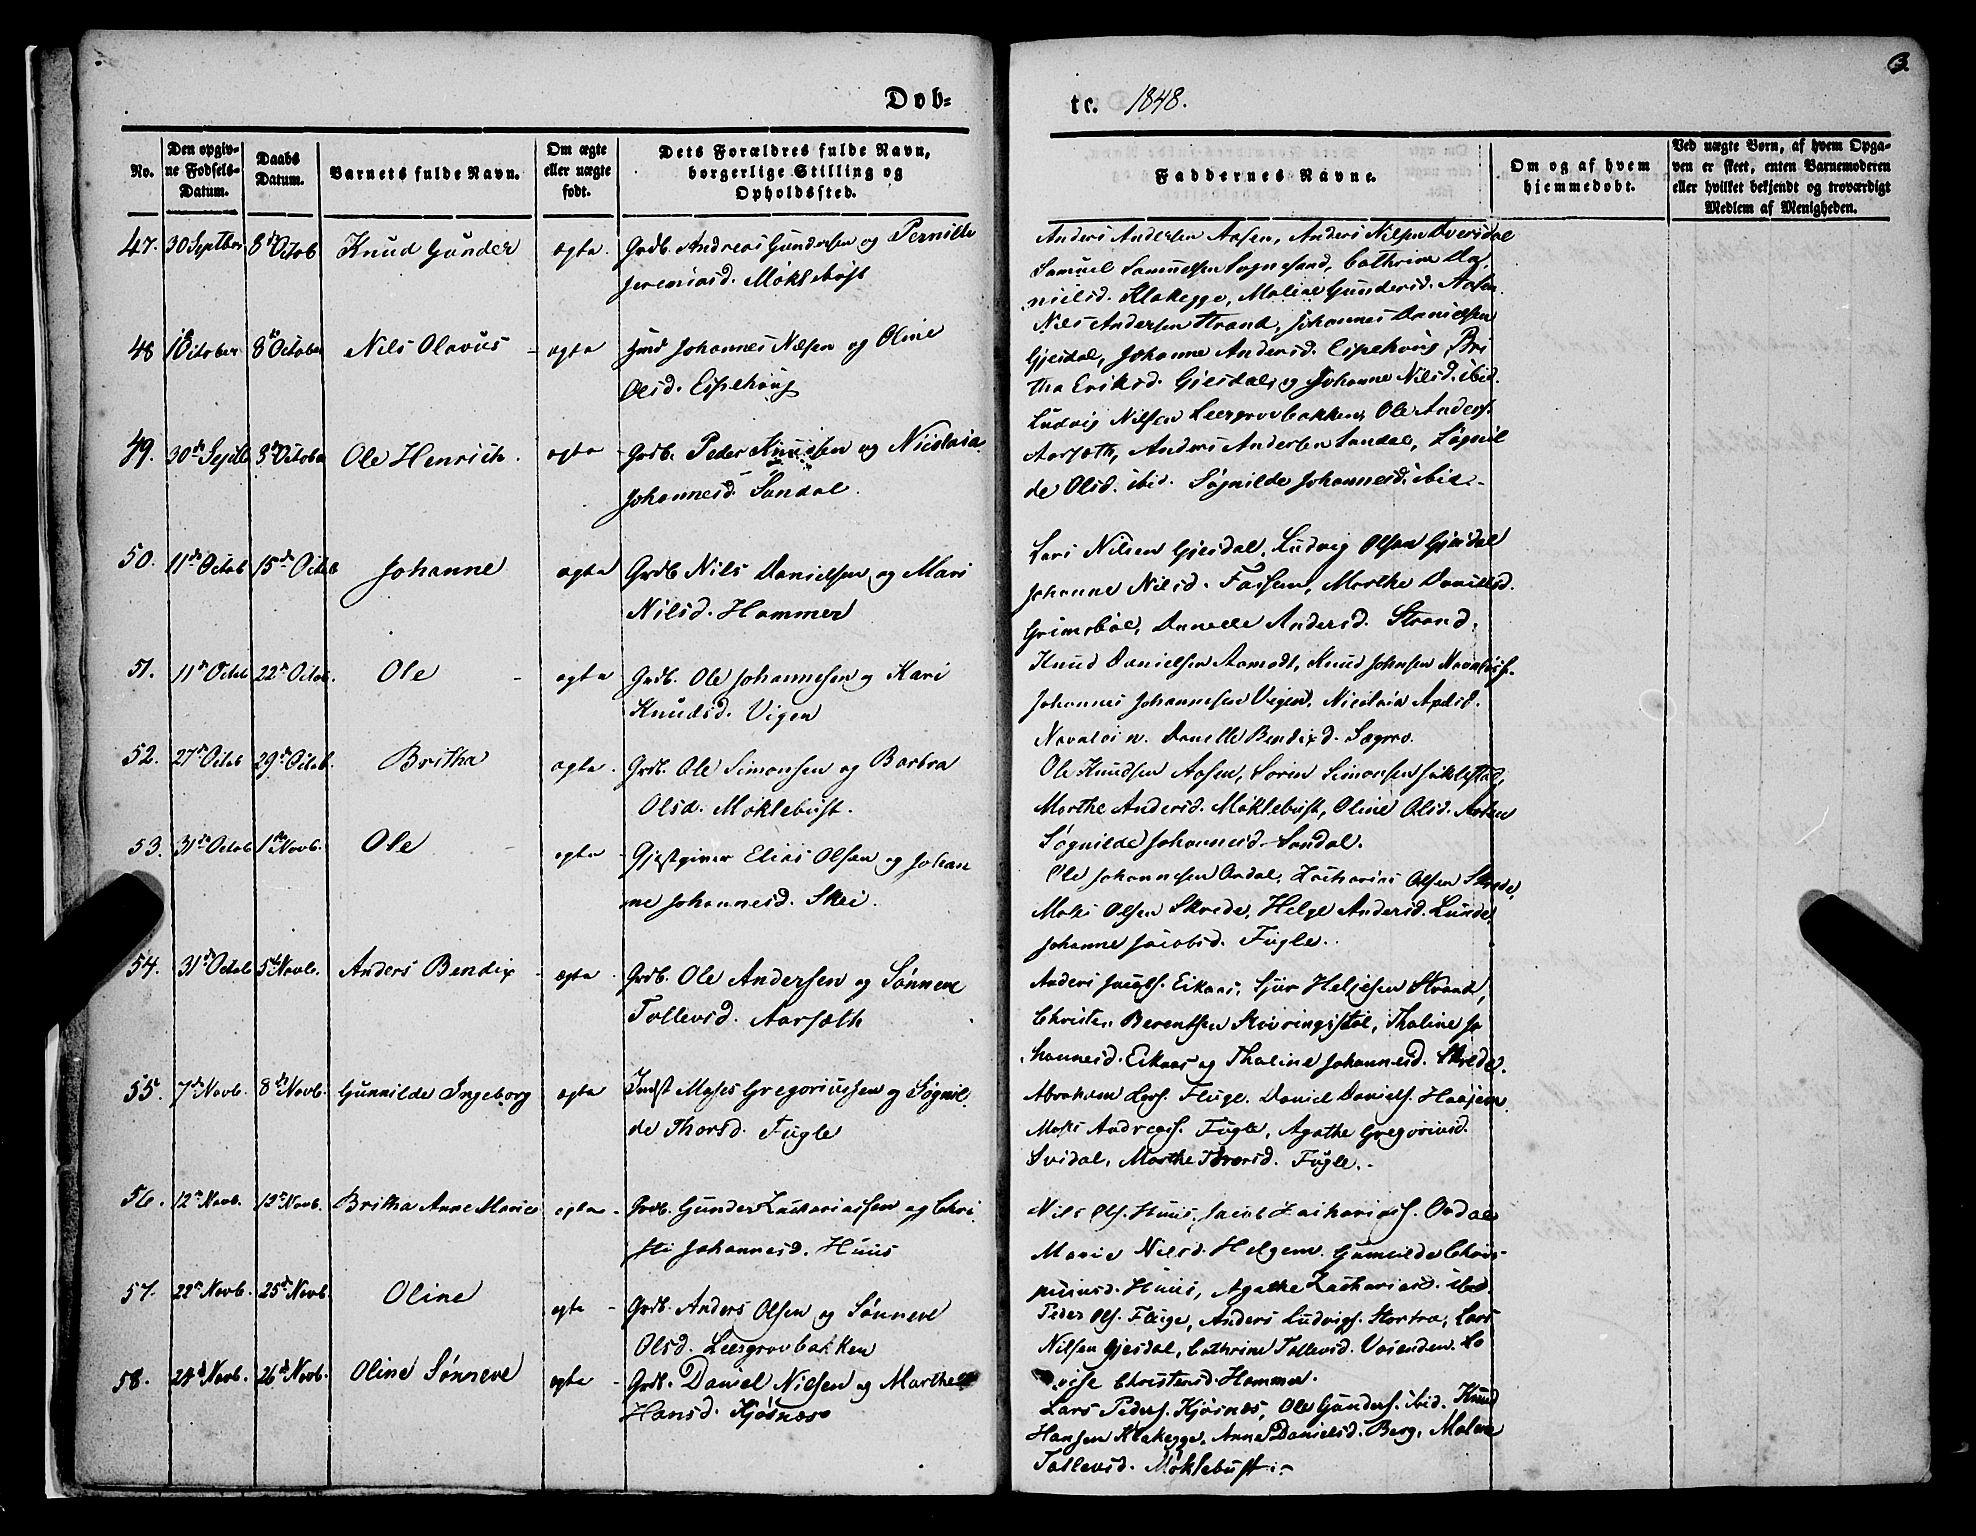 3.
Døb-
te. 1848.
No.
Den opgiv-
ne Fødsels-
Datum.
Daabs
Datum.
Barnets fulde Navn.
Om ægte
eller uægte
født.
Dets Forældres fulde Navn,
borgerlige Stilling og
Opholdssted.
Faddernes Navne.
Om og af hvem
hjemmedøbt.
Ved uægte Børn, af hvem Opga-
ven er skeet, enten Barnemoderen
eller hvilket bekjendt og troværdigt
Medlem af Menigheden.
47. 30 Septber 8de Octob Knud Gunder ægta Grdb. Andreas Gundersen og Pernille
Jeremiasd. Møklebust
Anders Andersen Aasen, Anders Nilsen Dvergsdal
Samuel Samuelsen Sognesand, Cathrine Da
nielsd. Klakegge, Malene Gundersd. Aasen
48 1 October 8de October Nils Olavus ægta Johannes Nilsen og Oline
Olsd. Espehoug
Nils Andersen Strand, Johannes Danielsen
Gjesdal, Johanne Andersd. Espehoug, Bri
tha Eriksd. Gjesdal og Johanne Nilsd. ibid.
49. 30de Septb 8de October Ole Henrich. ægta Grdb. Peder Knudsen og Nicolaia
Johannesd. Sandal.
Ludvig Nilsen Leergrovbakken, Ole Anders.
Aarsæth, Anders Andersen Sandal, Søgnil
de Olsd. ibid. Søgnilde Johannesd. ibid.
50. 11de Octob 15de Octob Johanne ægta Grdb Nils Danielsen og Mari
Nilsd. Hammer
Lars Nilsen Gjesdal, Ludvig Olsen Gjesdal
Johanne Nilsd. Fossem, Marthe Danielsd.
Grimsbøl, Danelle Andersd. Strand.
51. 11te Octob 22de Octob. Ole ægta Grdb. Ole Johannesen og Kari
Knudsd. Vigen
Knud Danielsen Aamodt, Knud Johnsen
Johannes Johannesen Vigen, Nicolaia
Danelle Bendixd. Sægrov.
52. 27de Octob 29de Octob. Britha ægta Grdb. Ole Simonsen og Barbra
Olsd. Møklebust.
Ole Knudsen Aasen, Søren Simonsen
Marthe Andersd. Møklebust, Oline Olsd. Aasen
Søgnilde Johannesd. Sandal.
53. 31te Octob 1te Novb. Ole ægta Gjestgiver Elias Olsen og Johan
ne Johannesd. Skei.
Ole Johannesen Ordal, Zacharias Olsen Skrede,
Olsen Skrede, Helge Andersd. Lunde,
Johanne Jacobsd. Fugle.
54. 31te Octob 5te Novb. Anders Bendix ægta Grdb. Ole Andersen og Sønneve
Tollevsd. Aarsæth
Anders Jacobs. Eikaas, Sjur Helgesen Strand,
Christen Berentsen Støvringsstøl, Thaline Jo
hannesd. Eikaas og Thaline Johannesd. Skrede.
55. 7de Novb. 8de Novb. Gunnilde Ingeborg ægta Indst Moses Gregoriussen og Søgnil
de Thorsd. Fugle
Abraham Lars. Fluge, Daniel Daniels.
Andreas. Fugle, Agathe Gregoriusd.
Svidal, Marthe Thorsd. Fugle.
56. 12te Novb. 12te Novb. Britha Anne Marie ægta Grdb. Gunder Zachariassen og Chri
sti Johannesd. Huus
Nils Ols. Huus, Jacob Zacharias. Ordal
Marie Nilsd. Helgem, Gunnilde Chris-
Huus, Agathe Zachariasd. ibid.
57. 22de Novb. 25de Novb. Oline ægta Grdb. Anders Olsen og Sønneve
Olsd. Leergrovbakken
Peder Ols. Fluge, Anders Ludvigs. Stortra, Lars
Nilsen Gjesdal, Cathrine Tollevsd. Lo
vise Christensd. Hammer.
58. 24de Novb. 26de Novb. Oline Sønneve ægta Grdb. Daniel Nilsen og Marthe
Hansd. Kjøsnæs
Lars Peders. Kjøsnæs, Ole Gunders. ibid. Knud
Hansen Klakegge, Anne Danielsd. Berg, Malene
Tollevsd. Møklebust.